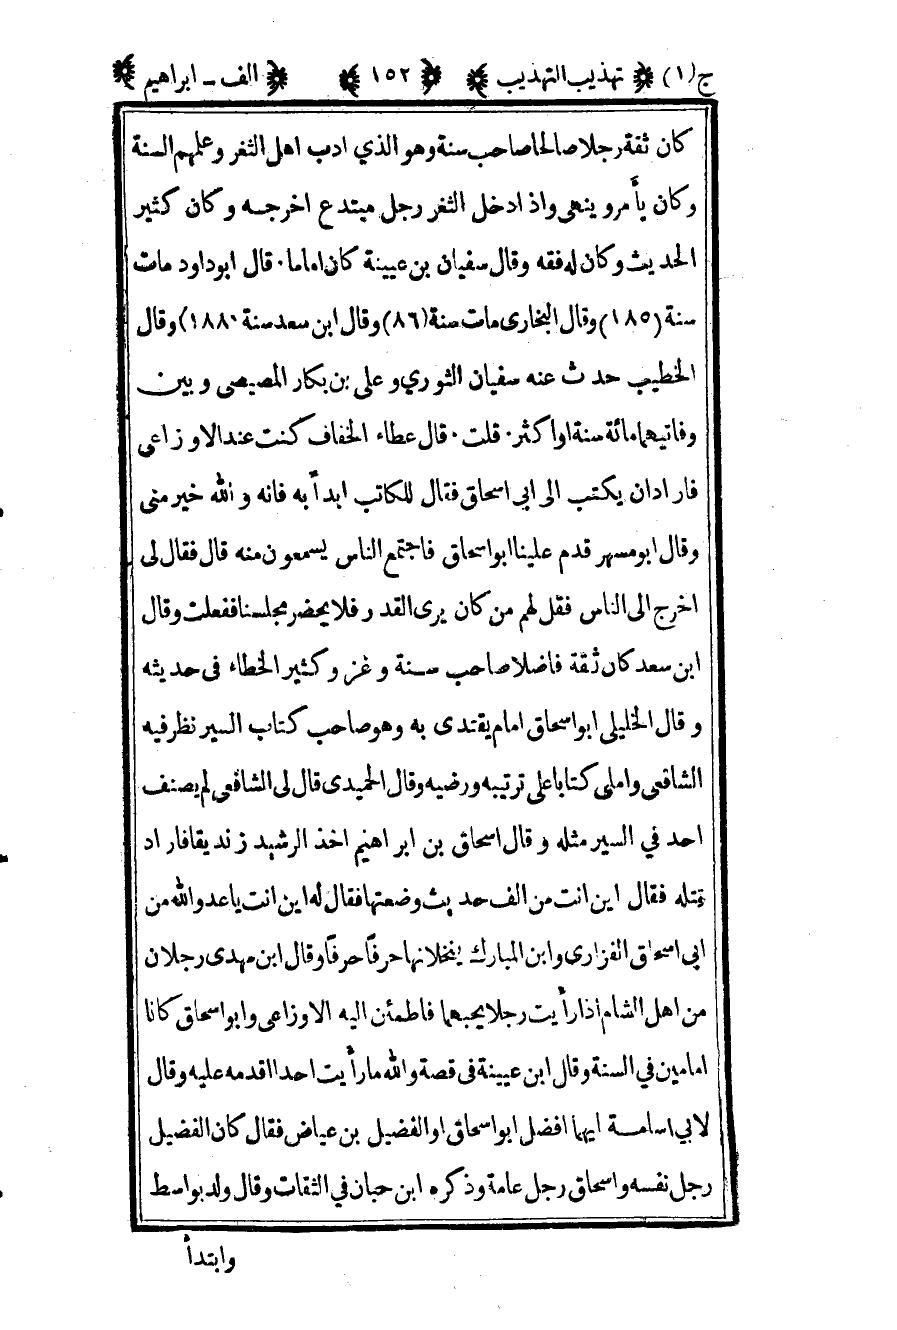 ج(١) تهذيب التهذيب ١٥٢ الف ـ ابراهيم
كان ثقة رجلا صالحا صاحب سنة وهو الذي ادب اهل الثغر وعلمهم السنة
وكان يأمر وينهى واذا دخل الثغر رجل مبتدع اخرجه وكان كثير
الحديث وكان له فقه وقال سفيان بن عيينة كان اماما · قال ابو داود مات
سنة (١٨٥) وقال البخارى مات سنة (٨٦) وقال ابن سعد سنة (١٨٨) وقال
الخطيب حدث عنه سفيان الثوري وعلى بن بكار المصيصى وبين
وفاتيهما مائة سنة او اكثر · قلت · قال عطاء الخفاف كنت عند الاوزاعى
فاراد ان يكتب الى ابى اسحاق فقال للكاتب ابدأ به فانه والله خير منى
وقال ابو مسهر قدم علينا ابو اسحاق فاجتمع الناس يسمعون منه قال فقال لى
اخرج الى الناس فقل لهم من كان يرى القدر فلا يحضر مجلسنا ففعلت وقال
ابن سعد كان ثقة فاضلا صاحب سنة وغز وكثير الخطاء فى حديثه
وقال الخليلى ابو اسحاق امام يقتدى به وهو صاحب كتاب السير نظر فيه
الشافعى واملى كتابا على ترتيبه ورضيه وقال الحميدى قال لى الشافعى لم يصنف
احد في السير مثله وقال اسحاق بن ابراهيم اخذ الرشيد زنديقا فاراد
قتله فقال اين انت من الف حديث وضعتها فقال له اين انت ياعدو الله من
ابى اسحاق الفزارى وابن المبارك ينخلانها حرفًا حرفًا وقال ابن مهدى رجلان
من اهل الشام اذا رأيت رجلا يحبهما فاطمئن اليه الاوزاعى وابو اسحاق كانا
امامين في السنة وقال ابن عيينة فى قصة والله ما رأيت احدا اقدمه عليه وقال
لابي اسامة ايهما افضل ابو اسحاق او الفضيل بن عياض فقال كان الفضيل
رجل نفسه واسحاق رجل عامة وذكره ابن حبان في الثقات وقال ولد بواسط
وابتدأ